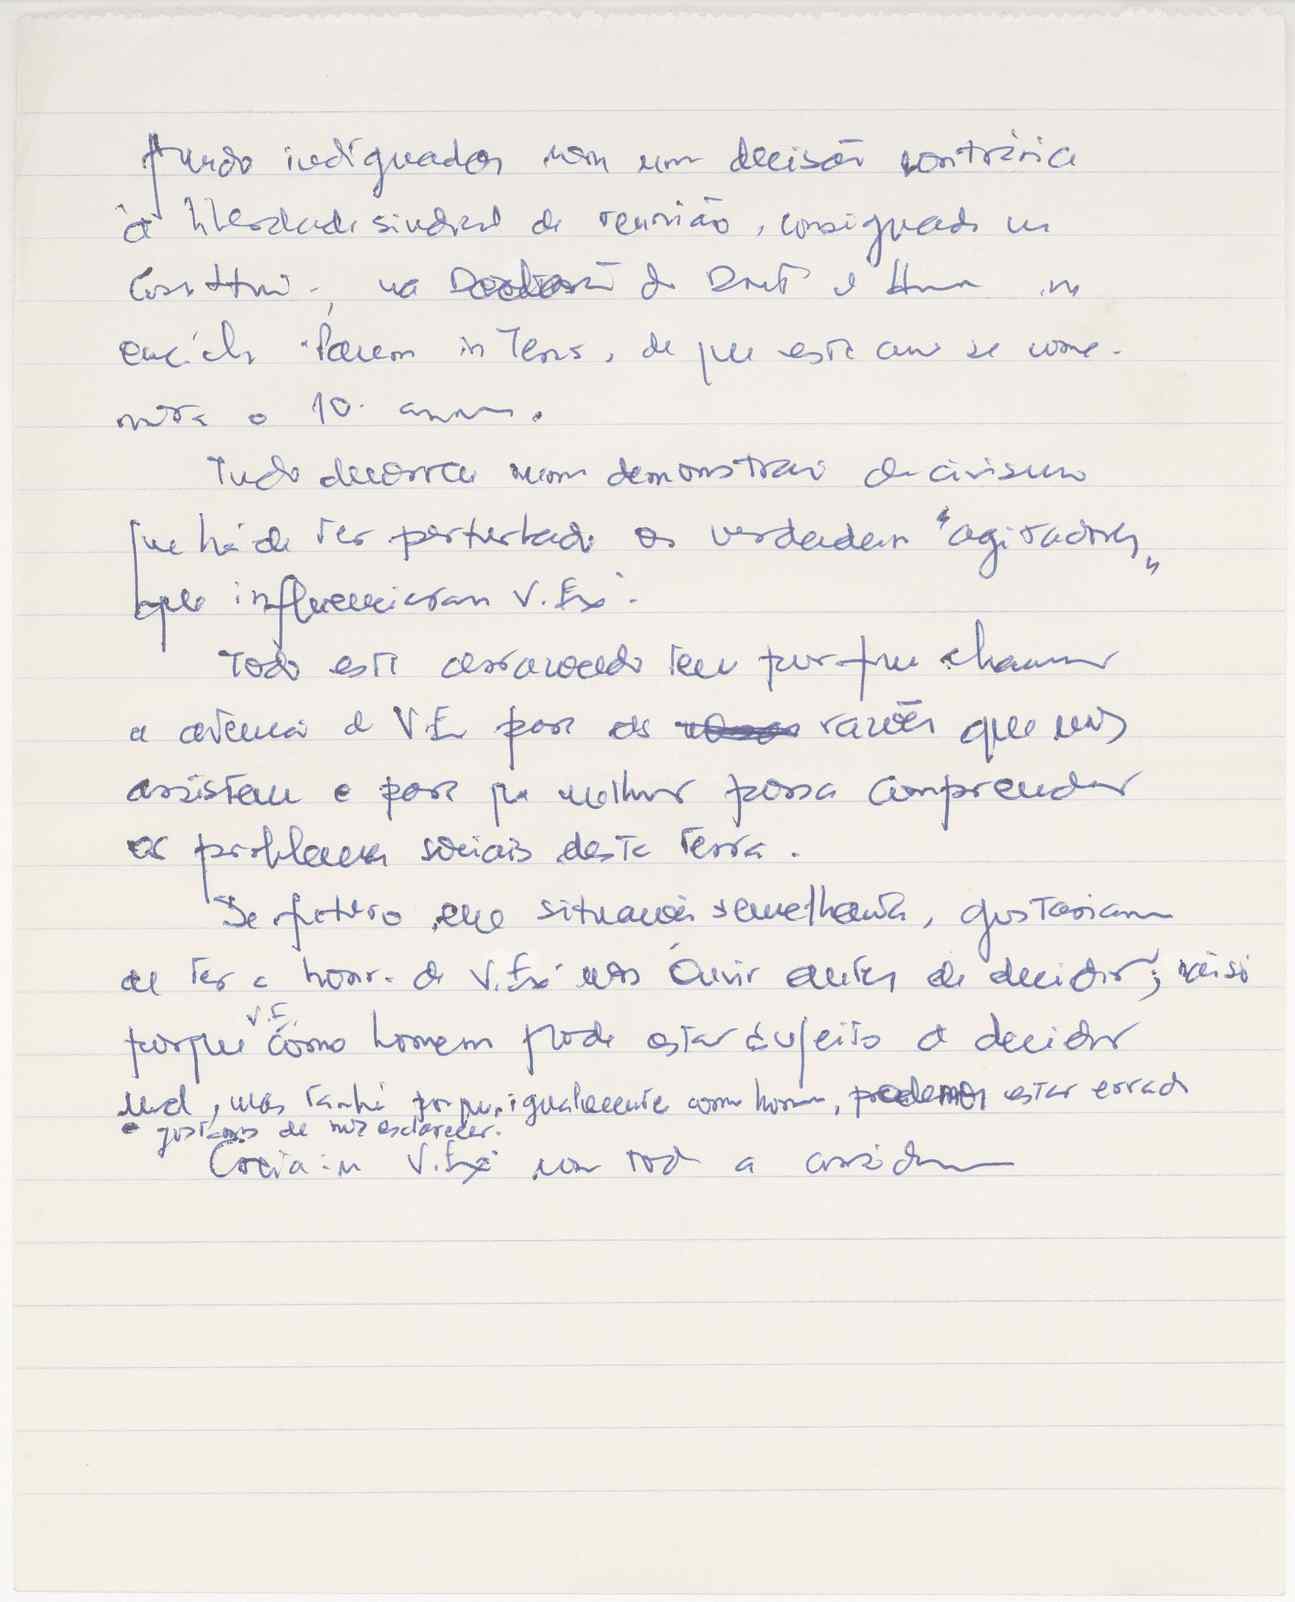 fundo indignados com uma decisão contrária
à liberdade sindical de reunião, consignada na
Constitui-, na Declaração de Direit e Hum na
encícli "Pacem in Terris, de que este ano se come-
mora o 10. anivers.
Tudo decorreu numa demonstraç de civismo
que há de ter perturbado os verdadeiros "agitadores"
que influenciaram V. Exª.
Todo este arrazoado tem por fim chamar
a atenção de V.E. para as razões que nos
assistem e para que melhor possa compreender
os problemas sociais desta terra.
De futuro, em situações semelhantes, gostaríamos
de ter a honra de V. Exª nos ouvir antes de decidir; não só
porque V.E. como homem pode estar sujeito a decidir
mal, mas também porque, igualmente como homens, podemos estar errados
e gostamos de nos esclarecer.
V. Exª com toda a consid